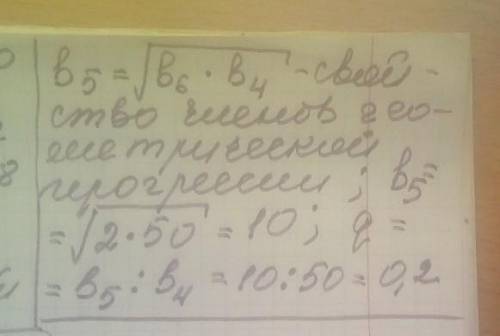 b₅ = √b₆ · b₄ - свой-
ство членов гео-
метрической
прогрессии; b₅ =
= √2·50 = 10; q =
= b₅ : b₄ = 10:50 = 0,2